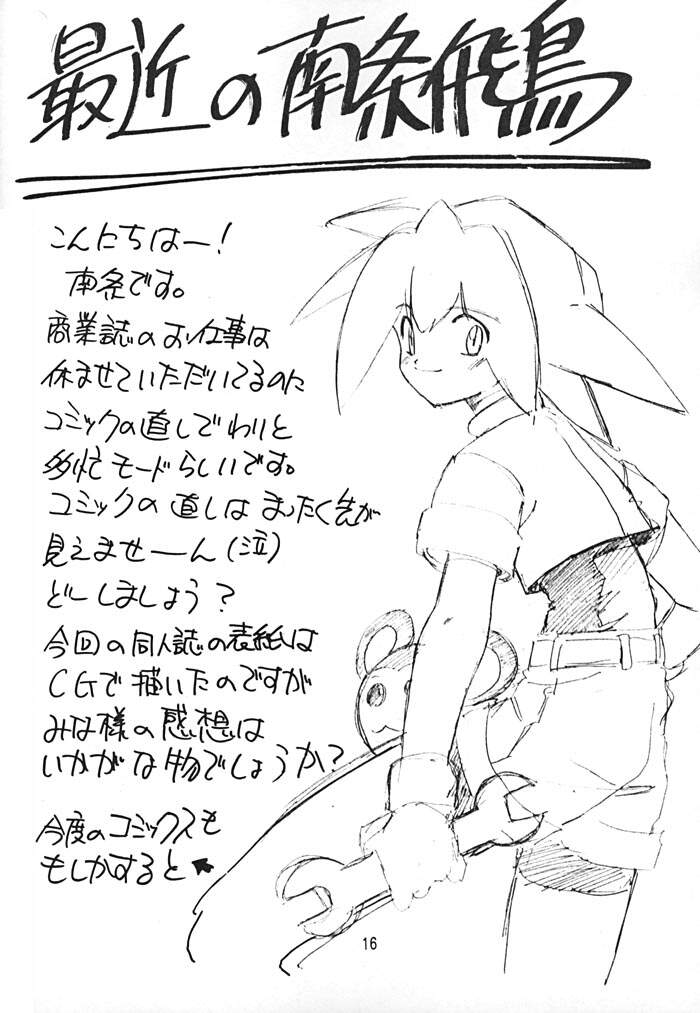 最近の南条飛鳥
こんにちはー！
南条です。
商業誌のお仕事は
休ませていただいてるのに
コミックの直しでわりと
多忙モードらしいです。
コミックの直しはまったく先が
見えませーん（泣）
どーしましょう？
今回の同人誌の表紙は
CGで描いたのですが
みな様の感想は
いかがな物でしょうか？
今度のコミックスも
もしかすると↖
16